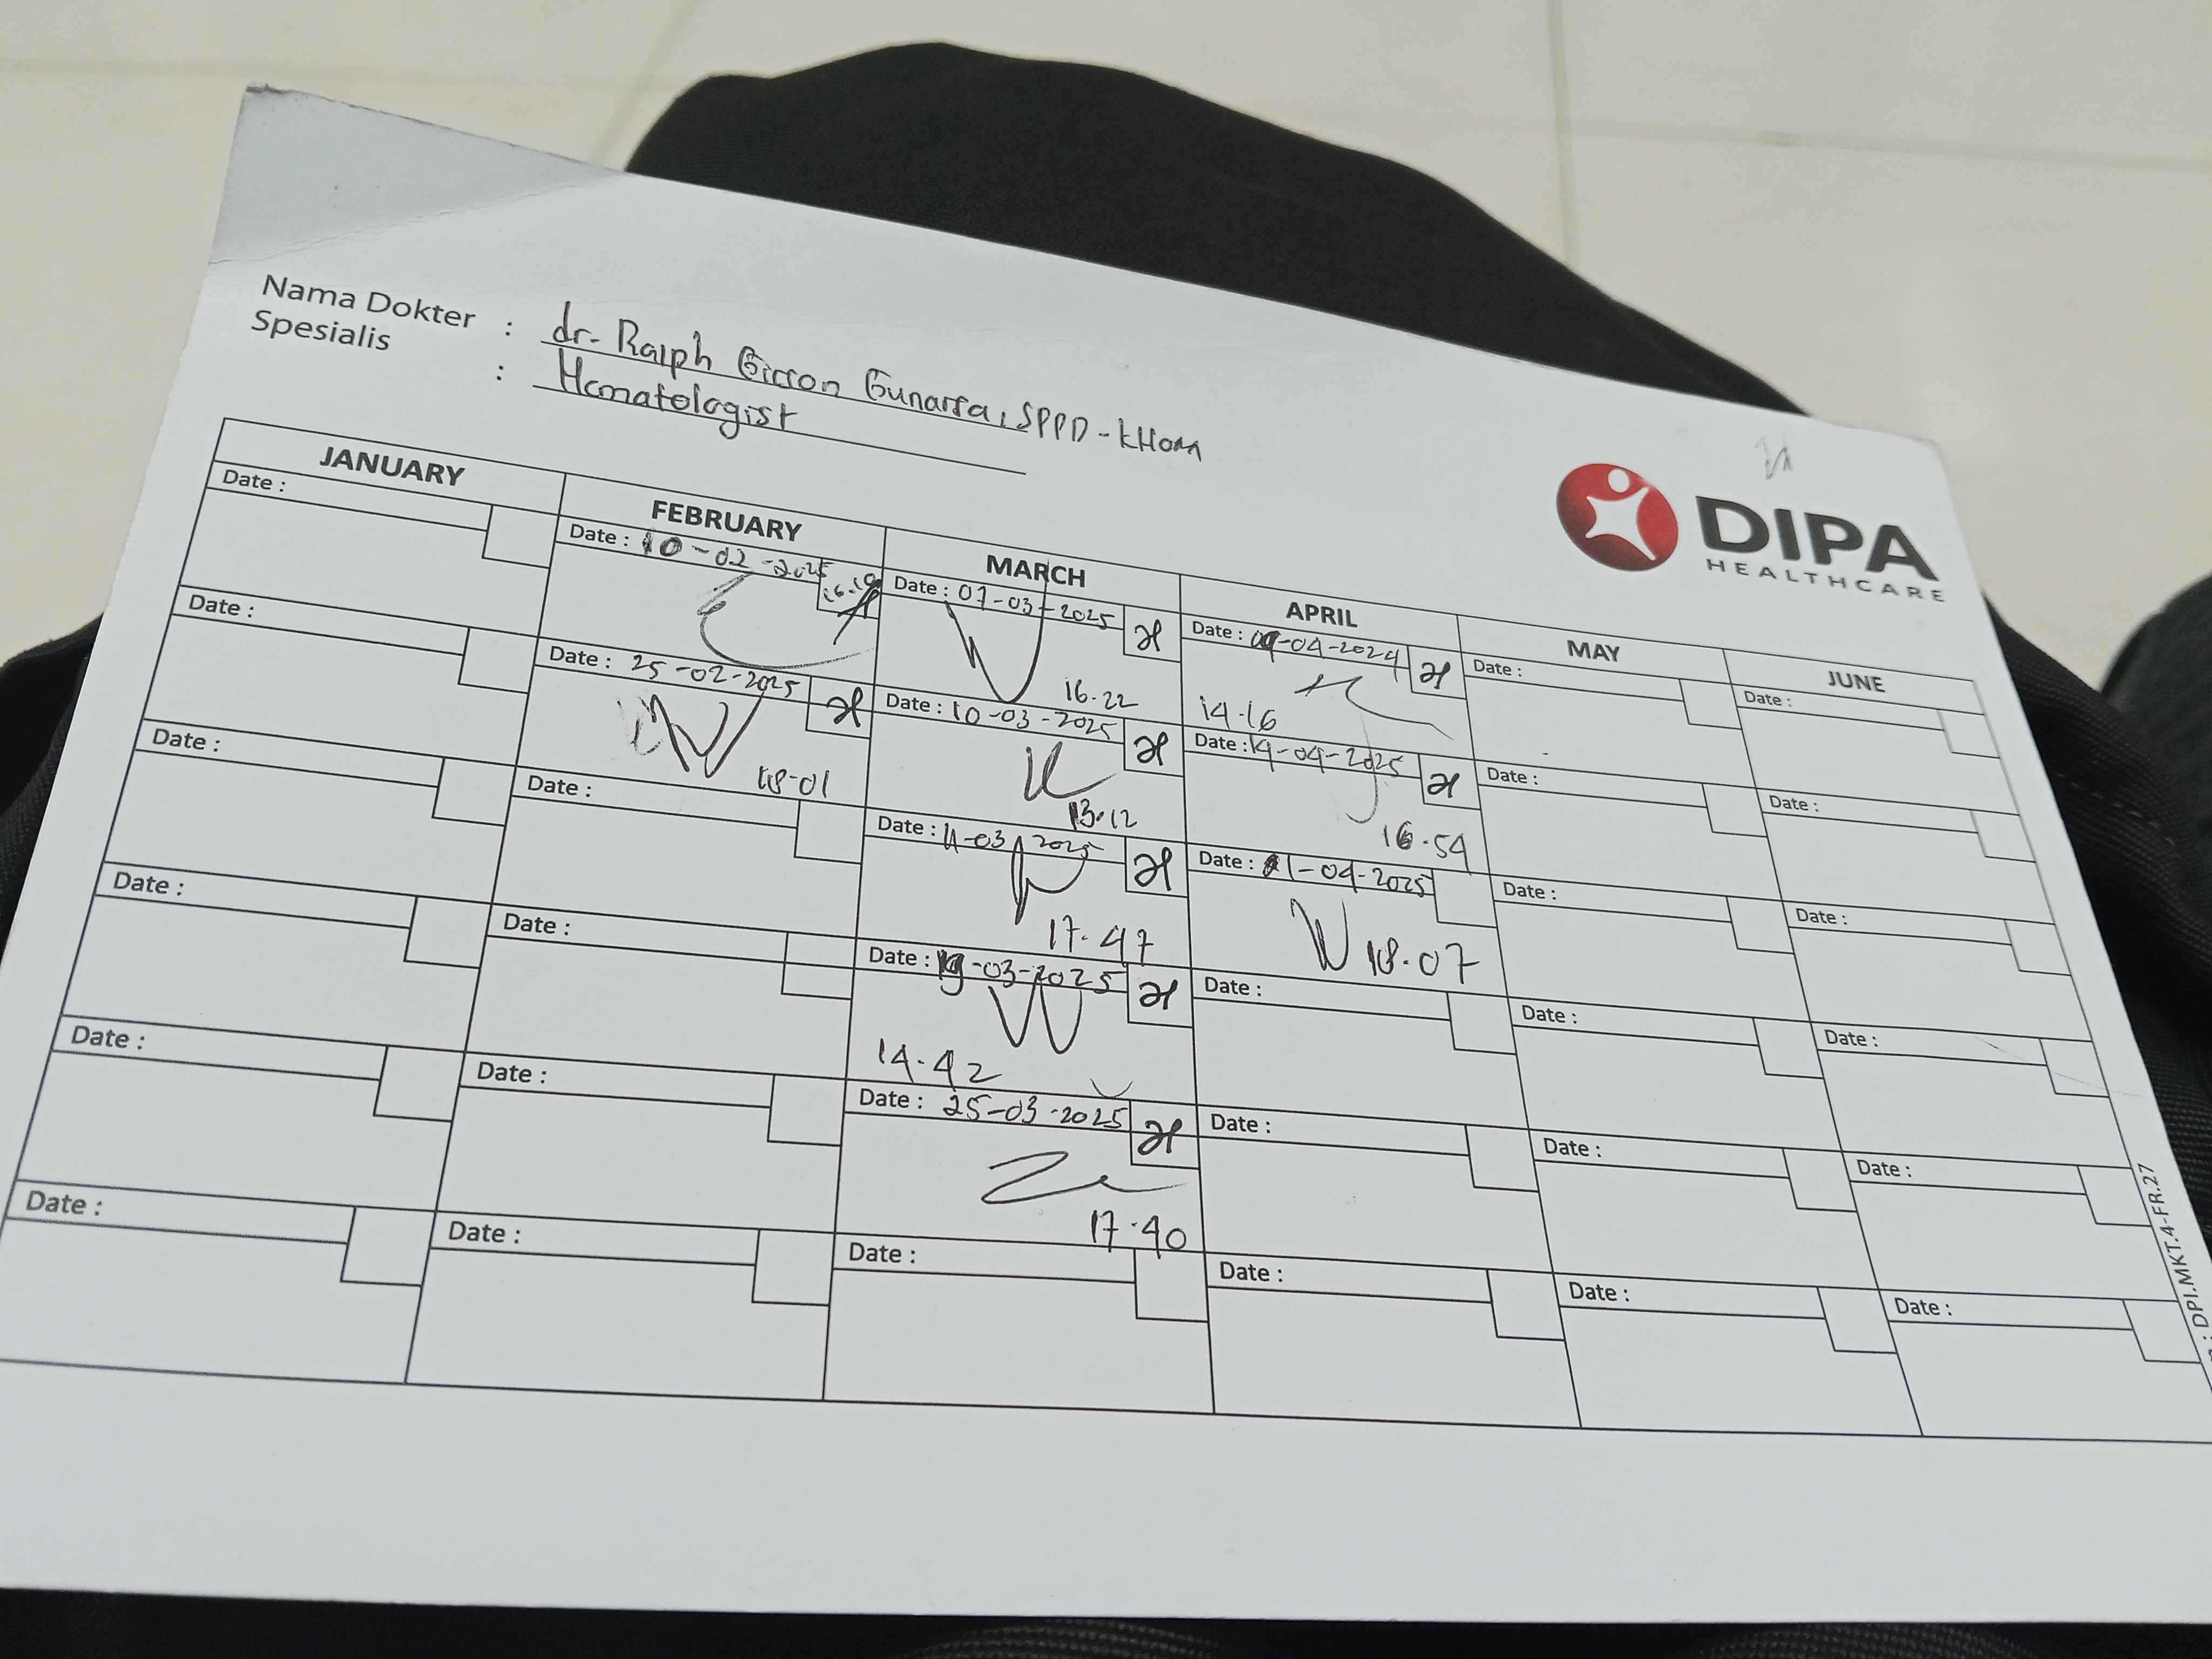 Nama Dokter : dr. Ralph Girson Gunarsa, SPPD-KHOM
Spesialis : Hematologist
DIPA
HEALTHCARE
JANUARY
Date :
Date :
Date :
Date :
Date :
Date :
FEBRUARY
Date : 10-02-2025
16.19
Date : 25-02-2025
18-01
Date :
Date :
Date :
Date :
MARCH
Date : 07-03-2025
16.22
Date : 10-03-2025
13.12
Date : 11-03-2025
17.47
Date : 19-03-2025
14.42
Date : 25-03-2025
17.40
Date :
APRIL
Date : 09-04-2024
14.16
Date : 14-04-2025
16.54
Date : 21-04-2025
18.07
Date :
Date :
Date :
MAY
Date :
Date :
Date :
Date :
Date :
Date :
JUNE
Date :
Date :
Date :
Date :
Date :
Date :
: DPI.MKT.4-FR.27